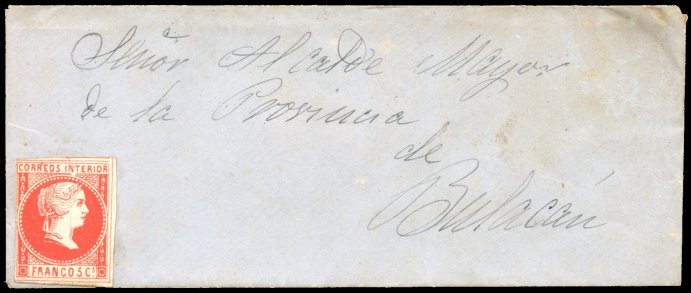 Señor Alcalde Mayor
de la Provincia
de
Bulacán
CORREOS INTERIOR
FRANCO 5 Cs.